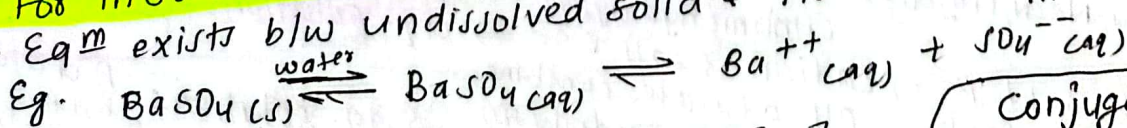 Eqm exists b/w undissolved solid
water
Eg. BaSO4(s) ⇌ BaSO4(aq) ⇌ Ba++(aq) + SO4--(aq)
conjug